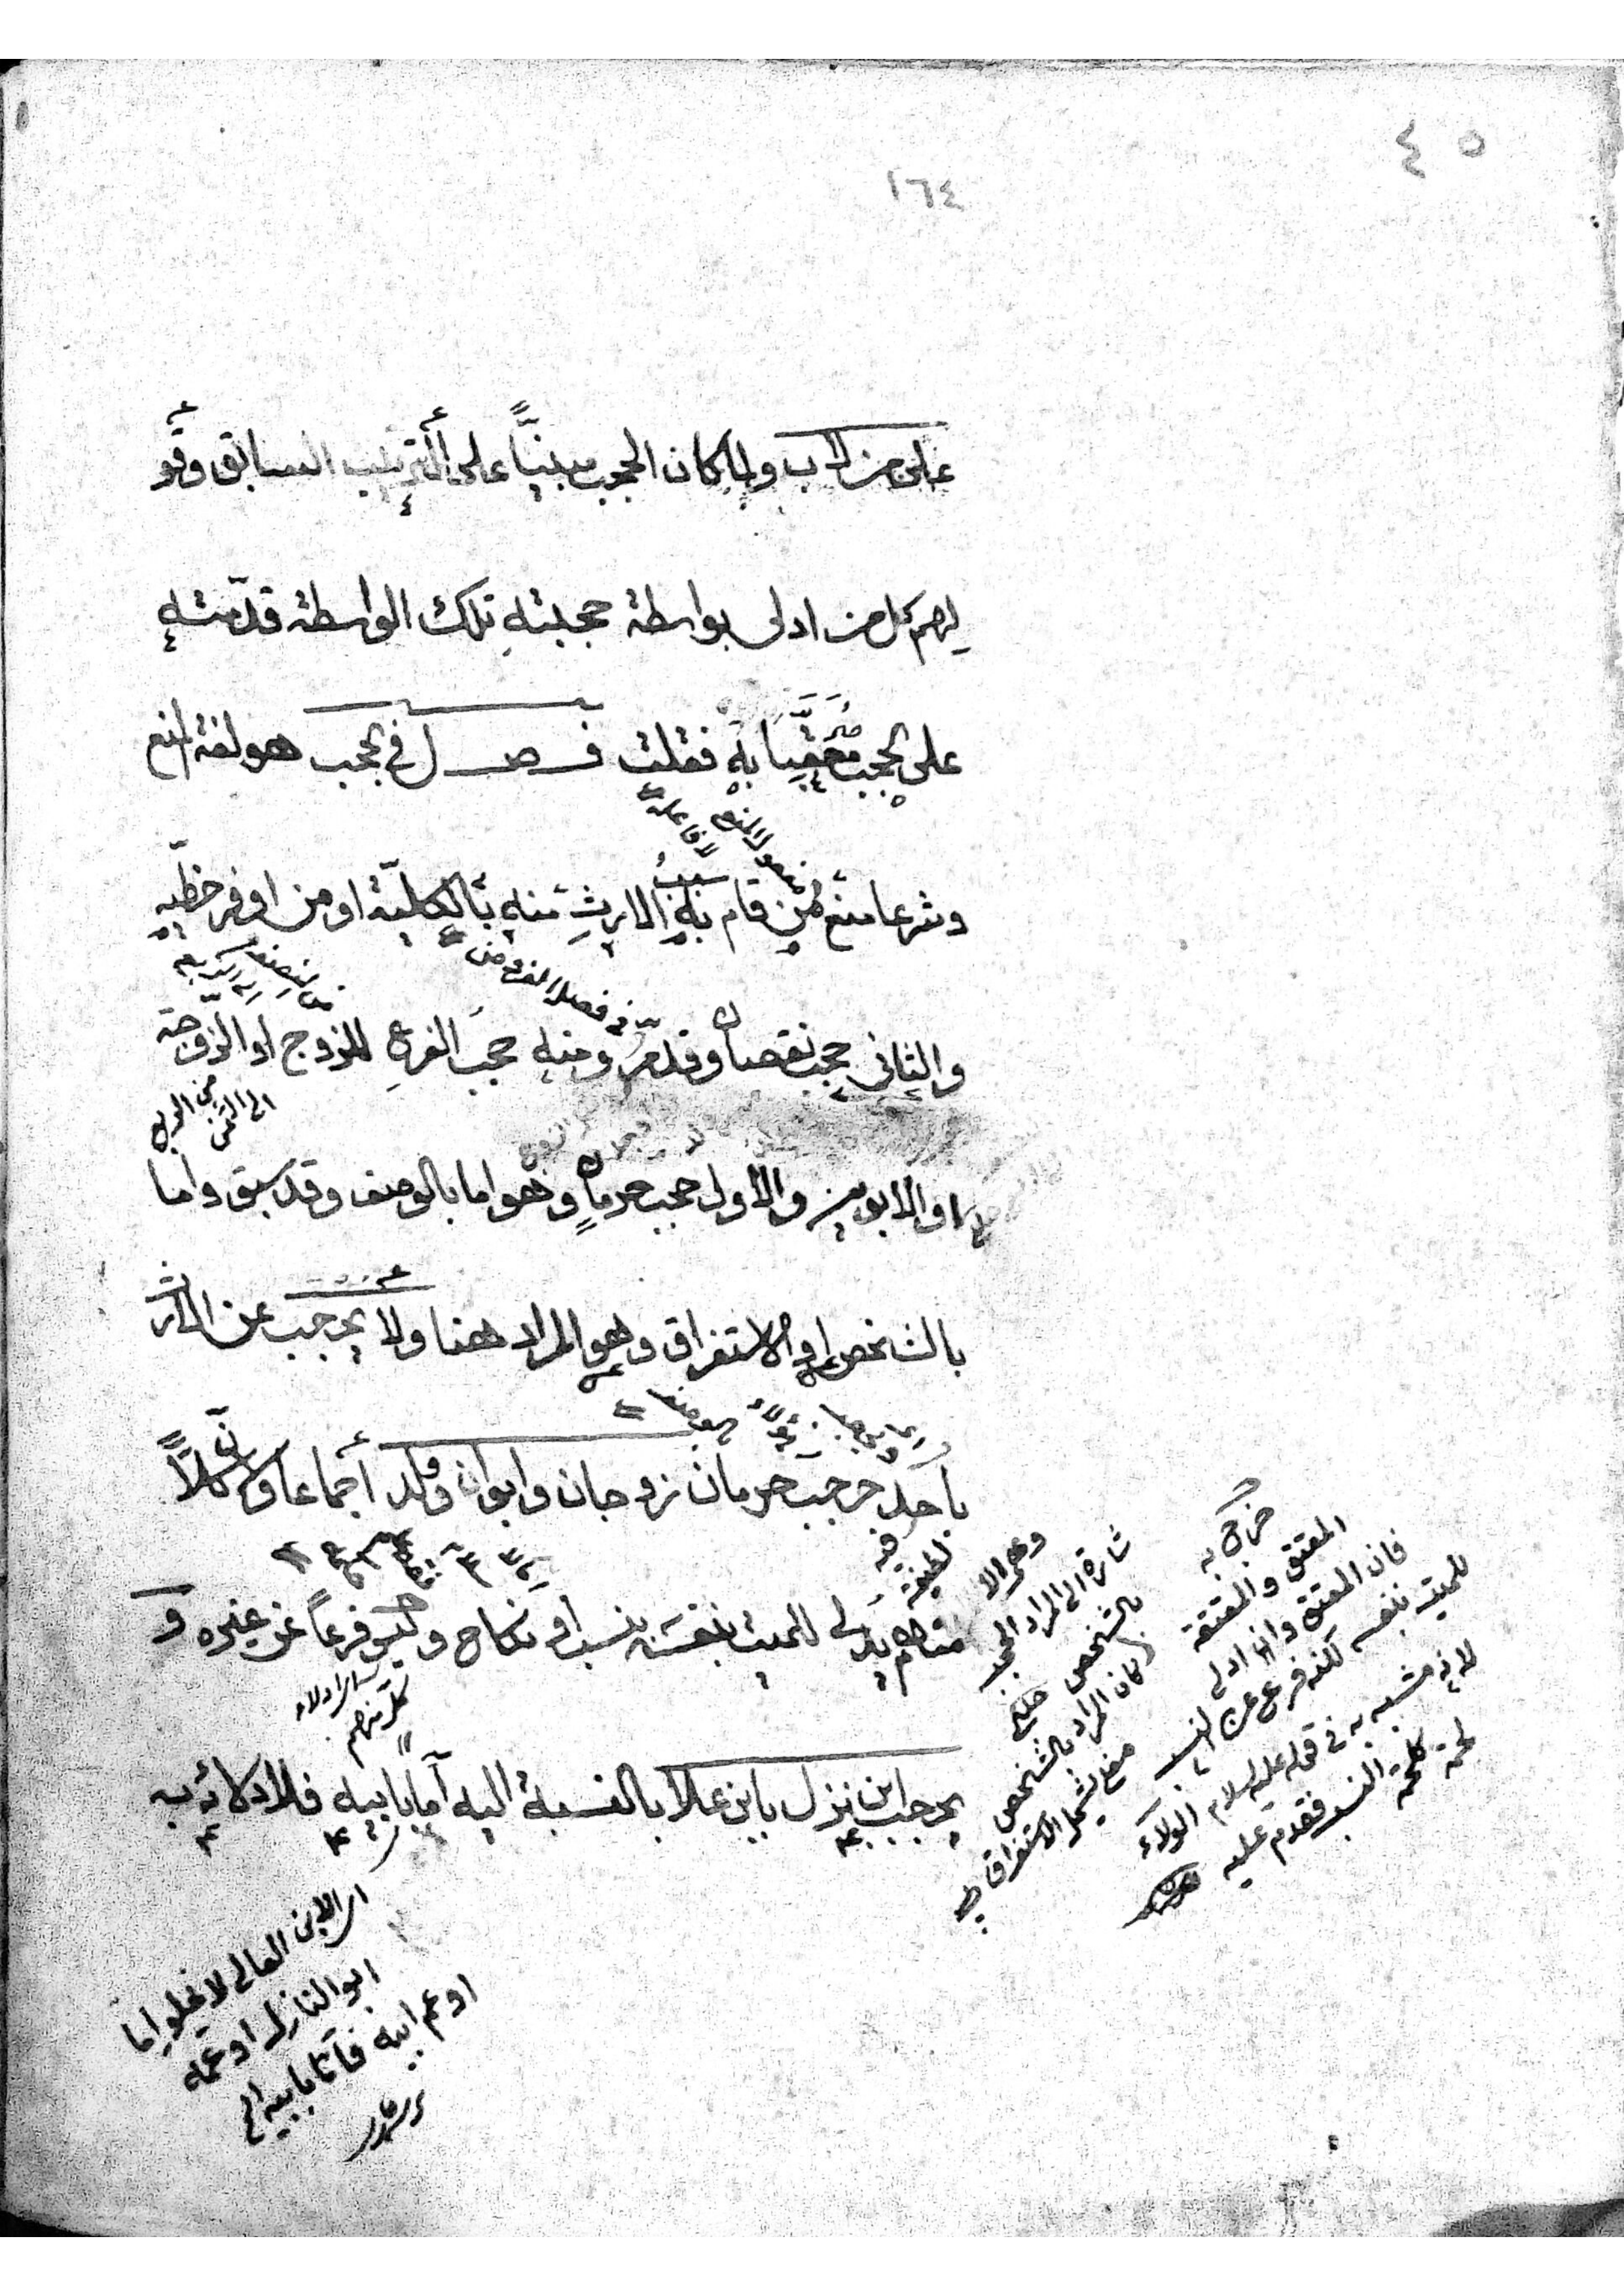 ٤٥
١٦٤
على من الاب ولما كان الحجب مبنيًّا على الترتيب السابق وقو
لهم كل من ادلى بواسطة حجبته تلك الواسطة قدّمته
على الحجب معقّبًا به فقلت فصل في الحجب هو لغة المنع
وشرعا منع من قام به سبب الارث منه بالكليّة او من اوفر حظّيه
والثاني حجب نقصان وقد مرّ ومنه حجب الفرع للزوج او الزّوجة
من الربع
الى الثمن
او الابوين والاول حجب حرمان وهو اما بالوصف وقد سبق واما
بالشخص او الاستغراق وهو المراد هنا ولا يحجب عن الارث
باحد حجب حرمان زوجان وابوان وولد اجماعا لان كلاًّ
منهم يدلى للميت بنفسه بنسب او نكاح وليس فرعاً عن غيره و
يحجب ابن نزل بابن علا بالنسبة اليه اما بابيه فلادلائه به
خرج به
المعتق والمعتقة
فان المعتق وان ادلى
للميت بنفسه لكنه فرع عن النسب
لانه مشبه به في قوله عليه السلام الولاء
لحمة كلحمة النسب فقدم عليه
شارة الى المراد الحجب
بالشخص
كان المراد بالشخص
الابن العالى لا يخلو اما
ابو النازل او عمه
او عم ابيه فاما بابيه الخ